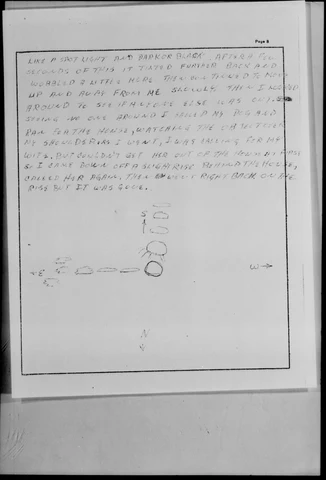 Page 8
LIKE A SPOT LIGHT AND DARK OR BLACK. AFTER A FEW
SECONDS OF THIS IT TILTED FURTHER BACK AND
WOBBLED A LITTLE HERE THEN CONTINUED TO MOVE
UP AND AWAY FROM ME SLOWLY. THEN I LOOKED
AROUND TO SEE IF ANYONE ELSE WAS OUT.
SEEING NO ONE AROUND I
RAN FOR THE HOUSE, WATCHING THE OBJECT OVER
MY SHOULDER AS I WENT, I WAS YELLING FOR MY
WIFE, BUT COULDN'T GET HER OUT OF THE HOUSE
SO I CAME DOWN OFF A SUGAR RISE BEHIND THE HOUSE,
CALLED HER AGAIN, THEN WENT RIGHT BACK ON THE
RISE BUT IT WAS GONE.
S
E
W
N